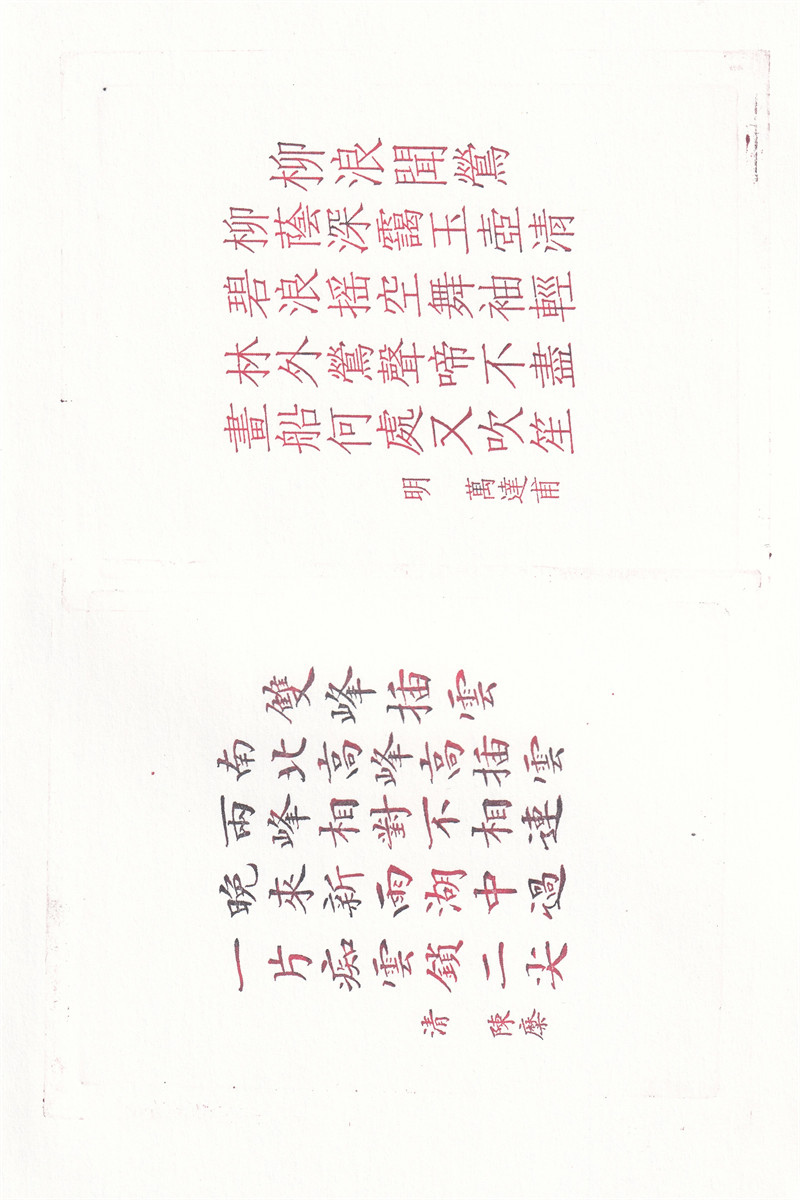 柳浪聞鶯
柳蔭深靄玉壺清
碧浪摇空舞袖輕
林外鶯聲啼不盡
畫船何處又吹笙
明 萬達甫
雙峰插雲
南北高峰高插雲
兩峰相對不相連
晚來新雨湖中過
一片痴雲鎖二尖
清 陳糜